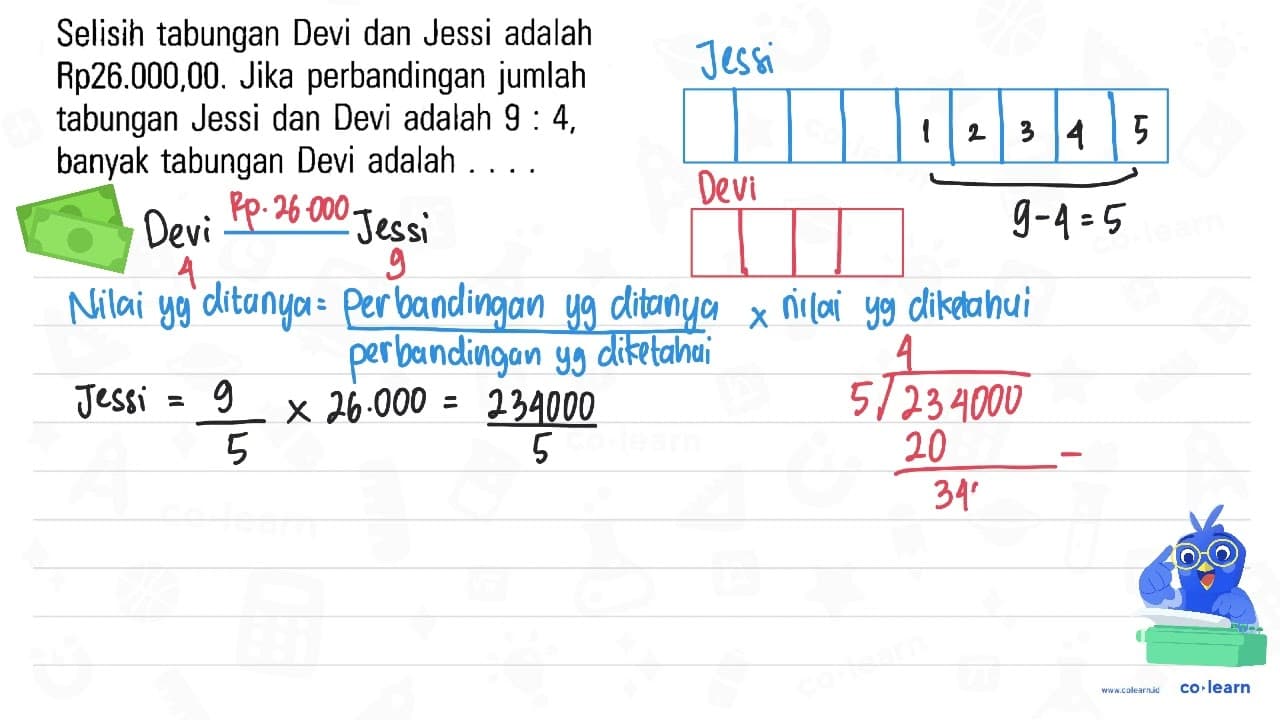 Selisih tabungan Devi dan Jessi adalah
Rp26.000,00. Jika perbandingan jumlah
tabungan Jessi dan Devi adalah 9 : 4,
banyak tabungan Devi adalah . . . .
Jessi
1 2 3 4 5
Devi
9-4=5
Devi Rp.26.000 Jessi
4 9
Nilai yg ditanya= Perbandingan yg ditanya x nilai yg diketahui
perbandingan yg diketahui
Jessi = 9 x 26.000 = 234000
5 5
4
5 234000
20 -
34
www.colearn.id co•learn